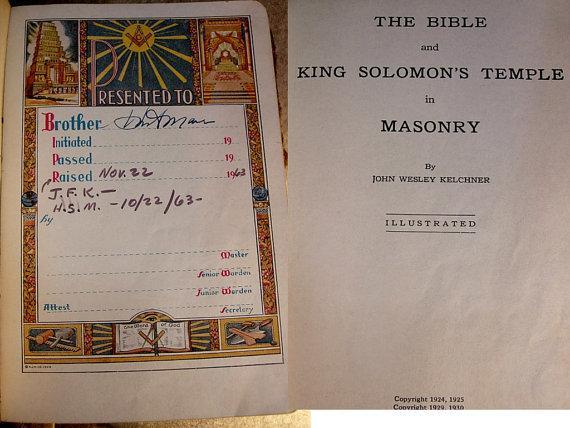 PRESENTED TO
Brother
Initiated 19
Passed 19
Raised Nov. 22 1963
J.F.K. —
H.S.M. - 10/22/63 -
by
Master
Senior Warden
Junior Warden
Attest Secretary
The Word of God
THE BIBLE
and
KING SOLOMON'S TEMPLE
in
MASONRY
By
JOHN WESLEY KELCHNER
ILLUSTRATED
Copyright 1924, 1925
Copyright 1929, 1930